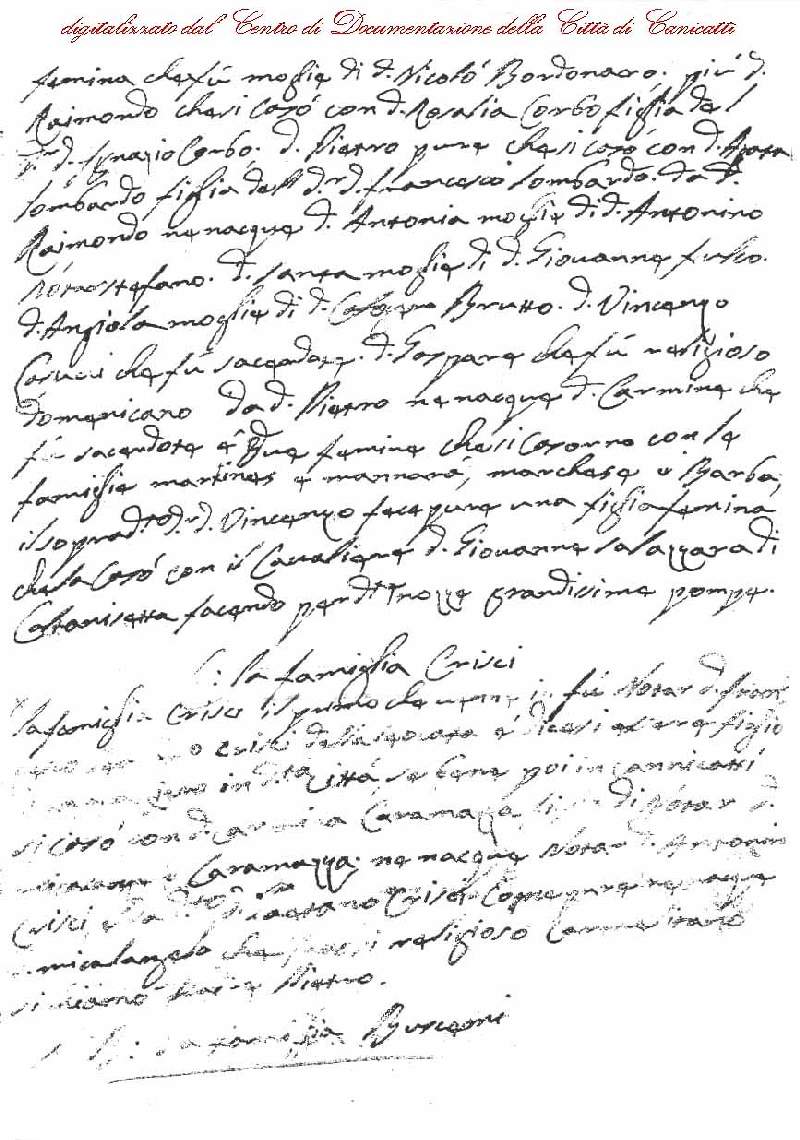 digitalizzato dal Centro di Documentazione della Città di Canicattì
femina che fú moglie di d. Nicoló Bordonaro. piu' d.
Raimondo che si casó con d. Rosalia Corbo figlia del
d. Ignazio Corbo. d. Pietro pure che si casó con d. Agata
Lombardo figlia dell d.r d. Francesco Lombardo. da d.
Raimondo ne nacque d. Antonia moglie di d. Antonino
Notarstefano. d. Santa moglie di d. Giovanne fusco.
d. Angiola moglie di d. Calogero Brutto. d. Vincenzo
che fú sacerdote. d. Gaspare che fú religioso
domenicano da d. Pietro ne nacque d. Carmine che
fú sacerdote e due femine che si casorno con le
famiglie martines e mannará, marchese e Barba,
il soprad.to d.r d. Vincenzo fece pure una figlia femina
che la casó con il Cavaliere d. Giovanne Salazzara di
Caltanisetta facendo per d.te nozze grandissime pompe.
la famiglia Crisci
la famiglia Crisci il primo che venne fú Notar d.
Crisci della e dicesi essere figlio
in d.ta cittá, se bene poi in Cannicattí
si casó con d. Carmina Caramazza di Notar d.
Caramazza. ne nacque Notar d. Antonino
Crisci Gaetano Crisci Come pure ne nacque
micalangelo che religioso Carmelitano
si Pietro.
la famiglia